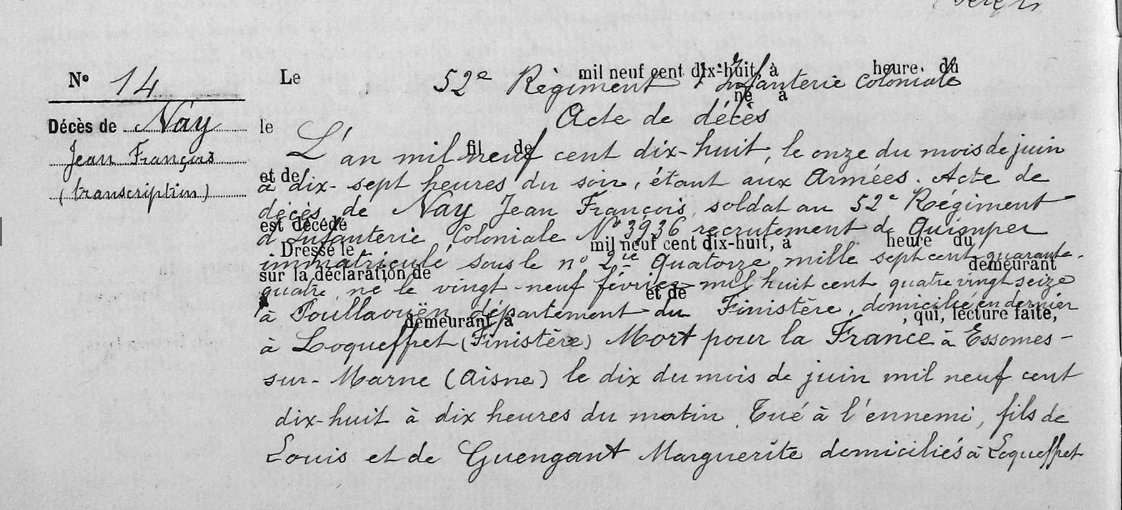 N° 14
Décès de Nay
Jean François
(transcription)
Le mil neuf cent dix-huit, à heure du
52e Régiment d'Infanterie Coloniale
né à
le Acte de décès
fil de
L'an mil neuf cent dix-huit, le onze du mois de juin
et de
à dix-sept heures du soir, étant aux Armées. Acte de
décès de Nay Jean François, soldat au 52e Régiment
est décédé
d'Infanterie Coloniale N° 3936 recrutement de Quimper
Dressé le mil neuf cent dix-huit, à heure du
immatriculé sous le n° 2cie Quatorze mille sept cent quarante-
sur la déclaration de demeurant
quatre, né le vingt-neuf février mil huit cent quatre vingt seize
et de
à Poullaouën département du Finistère, domicilié en dernier
demeurant à , qui, lecture faite,
à Loqueffret (Finistère) Mort pour la France à Essomes-
sur-Marne (Aisne) le dix du mois de juin mil neuf cent
dix-huit à dix heures du matin Tué à l'ennemi, fils de
Louis et de Guengant Marguerite domiciliés à Loqueffret